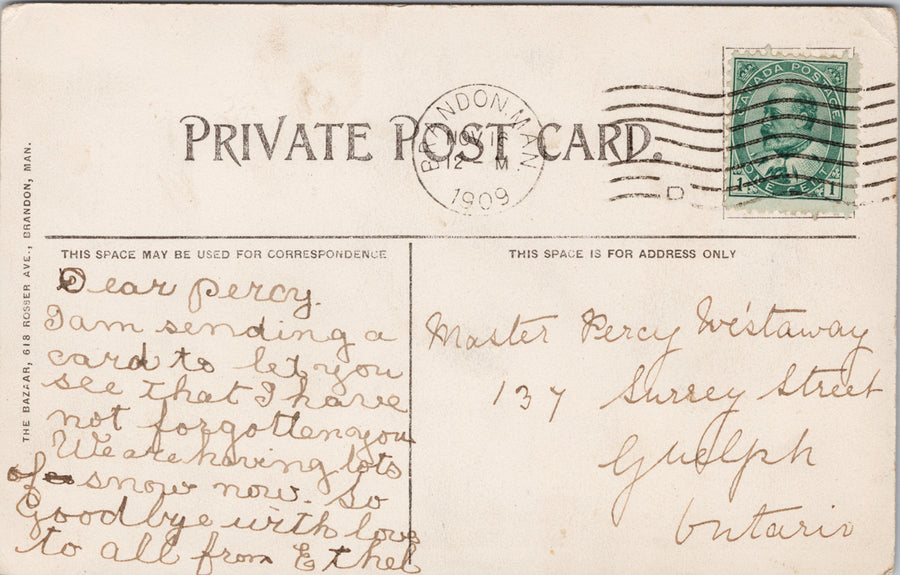 PRIVATE POST CARD.
BRANDON, MAN.
NOV 16
12 - M
1909
D
CANADA POSTAGE
1 ONE CENT 1
THE BAZAAR, 618 ROSSER AVE., BRANDON, MAN.
THIS SPACE MAY BE USED FOR CORRESPONDENCE
Dear Percy.
I am sending a
card to let you
see that I have
not forgotten you
We are having lots
of snow now. So
Goodbye with love
to all from Ethel
THIS SPACE IS FOR ADDRESS ONLY
Master Percy Westaway
137 Surrey Street
Guelph
Ontario